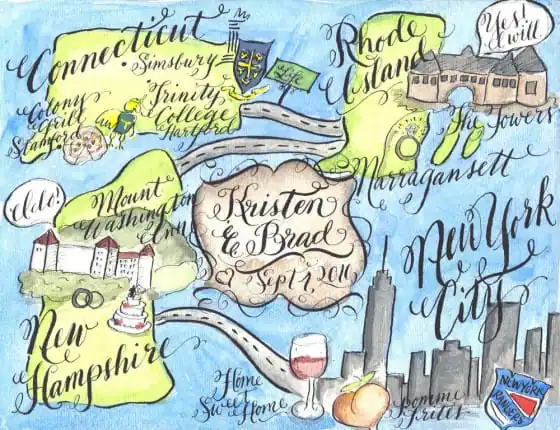 Connecticut
Simsbury
Life
Colony
Grill
Stamford
Trinity
College
Hartford
Rhode
Island
Yes!
I will
The Towers
Narragansett
I do!
Mount
Washington
Inn
New
Hampshire
Kristen
& Brad
Sept 2016
New York
City
Home
Sweet Home
Pomme
Frites
NEW YORK
RANGERS